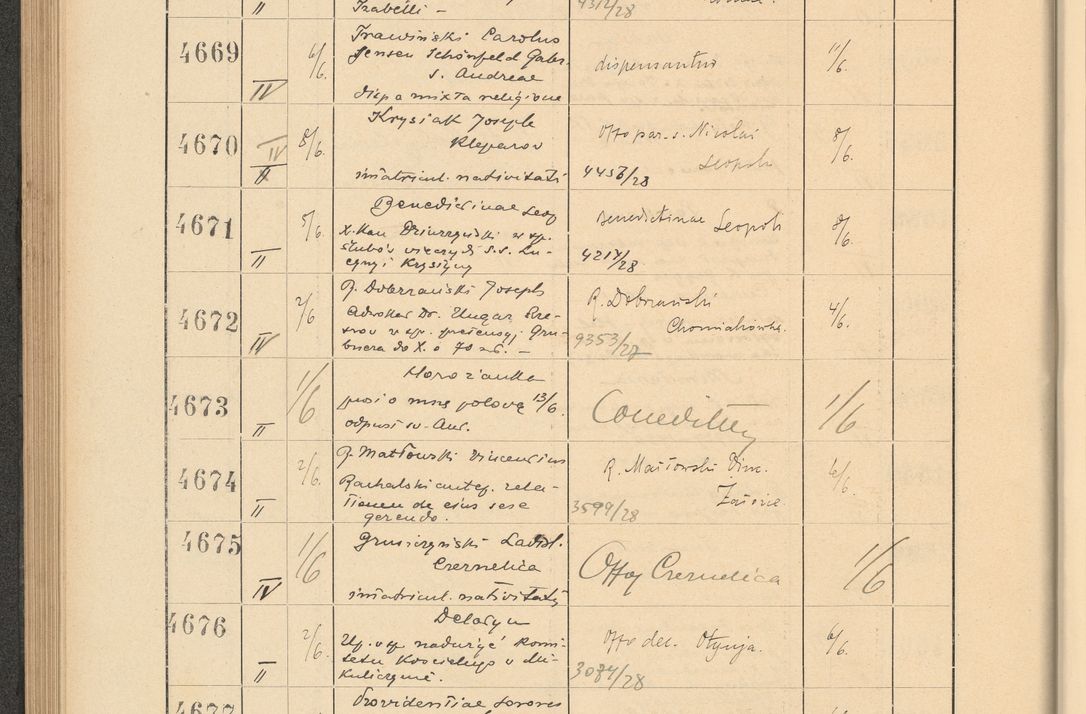 II Izabelli - 4312/28
4669 IV 6/6. Trawiński Carolus
Jensen Schönfeld Gabr.
s. Andreae
disp a mixta religione
dispensantur 11/6.
4670 IV II 5/6. Krysiak Joseph
Kleparov
imatricul. nativitati
Offo par. s. Nicolai
Leopoli
4456/28 8/6.
4671 II 5/6. Benedictinae Leop
X. Kan Dziurzyński w sp.
ślubów wieczyś. s.s. Lu-
cyny i Krystyny
Benedictinae Leopoli
4217/28 8/6.
4672 IV 2/6 R. Dobrzański Joseph
Adwokat Dr. Ungar
w sp. pretensyj Gru-
bnera do X. o 70 zł. -
R. Dobrzański
Chomiakówka.
9353/27 4/6.
4673 II 1/6 Horożanka
prosi o mszę polową 13/6.
odpust św. Ant.
1/6
4674 II 2/6. R. Matkowski Vincentius
Rachalski anteq. rela-
tionem de eius sese
gerendo.
R. Matkowski Vinc.
3599/28 6/6.
4675 IV 1/6 Grusiczyński Ladisl.
Czernelica
imatricul. nativitatis
Offoj Czernelica 1/6
4676 II 2/6. Delatyn
nadużyć Komi-
tetu Kościelnego w Mi-
kuliczynie.
Offo dec. Otynja.
3084/28 6/6.
4677 Providentiae sorores